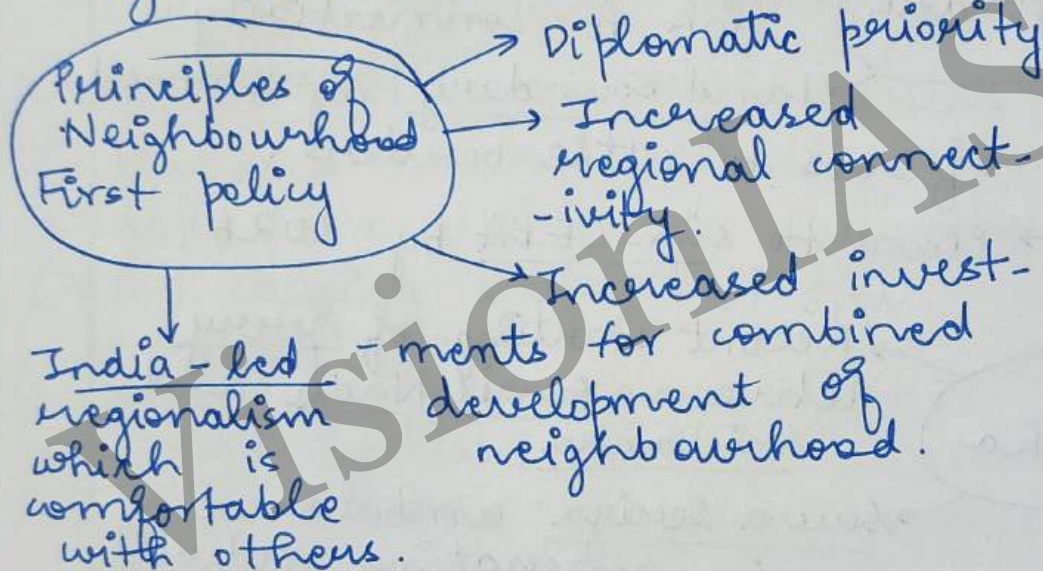 Principles of
Neighbourhood
First policy
Diplomatic priority
Increased
regional connect-
-ivity.
Increased invest-
-ments for combined
development of
neighbourhood.
India-led
regionalism
which is
comfortable
with others.
VisionIAS